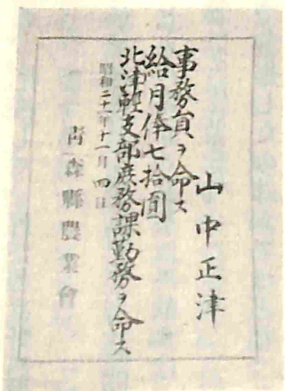 山中正津
事務員ヲ命ス
給月俸七拾圓
北津軽支部庶務課勤務ヲ命ス
昭和二十一年十一月四日
青森縣農業會